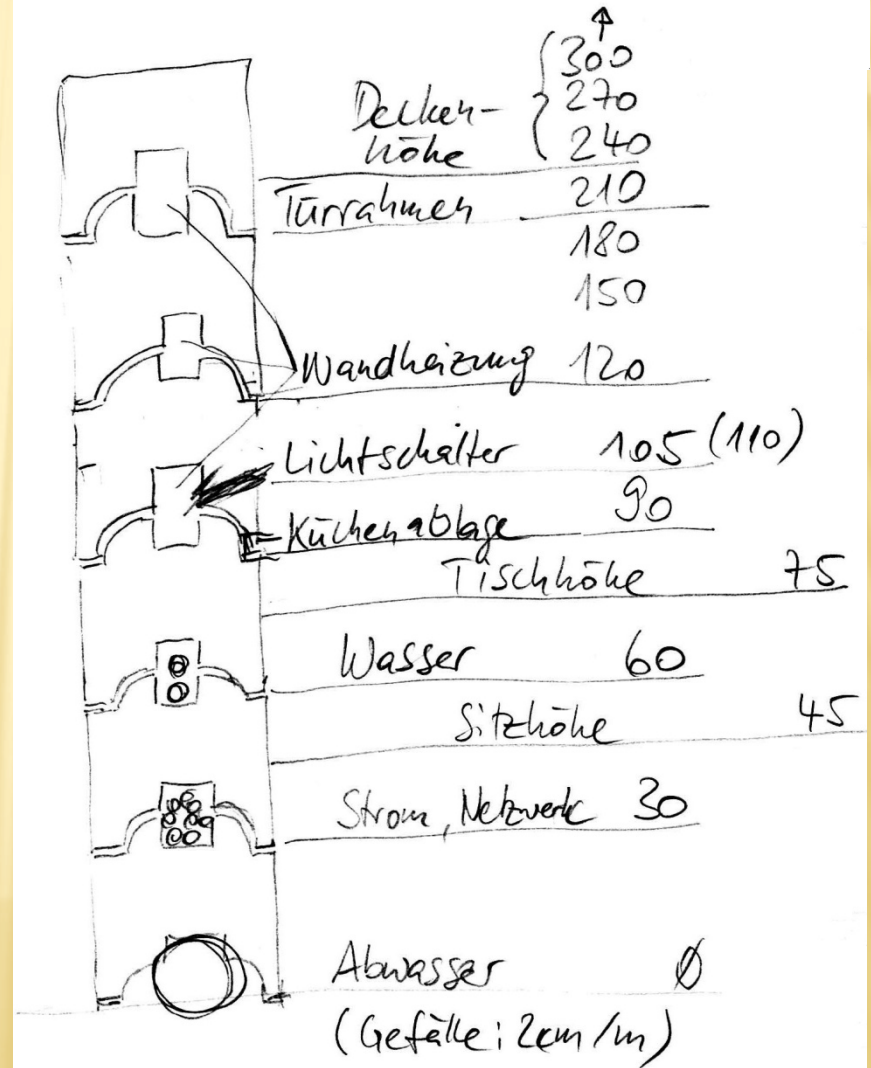 300
Decken- 270
höhe 240
Türrahmen 210
180
150
Wandheizung 120
Lichtschalter 105 (110)
Küchenablage 90
Tischhöhe 75
Wasser 60
Sitzhöhe 45
Strom, Netzwerk 30
Abwasser Ø
(Gefälle: 2cm/m)